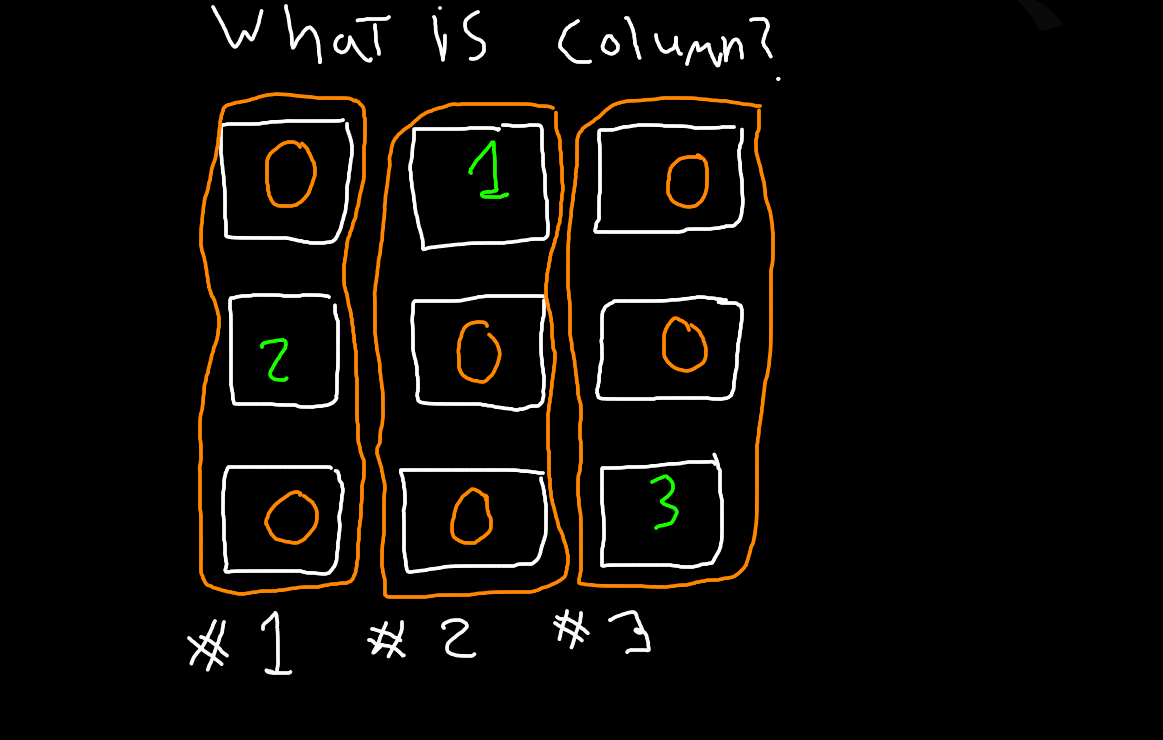 What is column?
0 1 0
2 0 0
0 0 3
#1 #2 #3